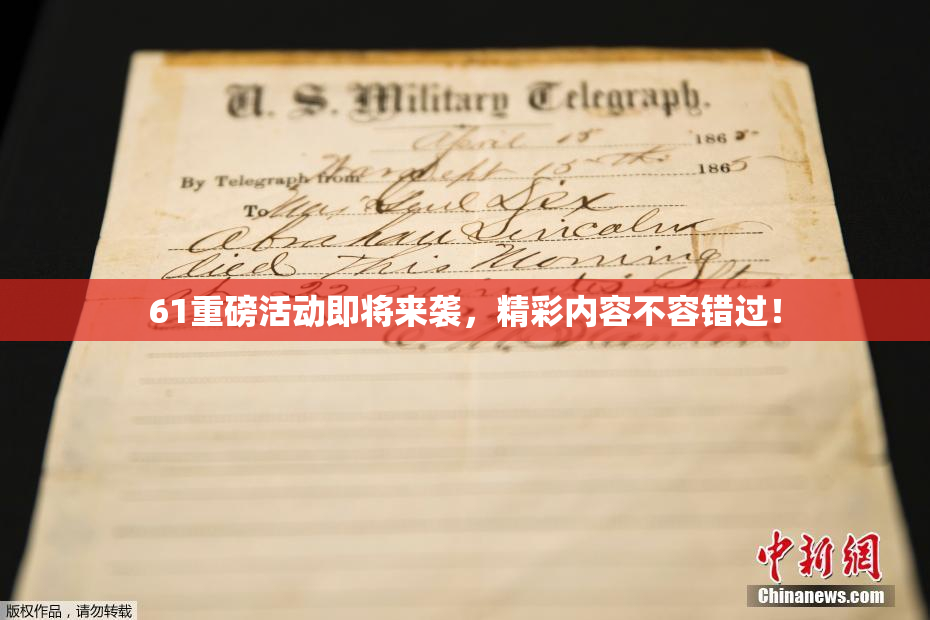 U. S. Military Telegraph.
April 15 1865
By Telegraph from War Dept 15th 1865
To Maj Genl Dix
Abraham Lincoln
died This Morning
at 22 minutes after
61重磅活动即将来袭，精彩内容不容错过！
中新網
Chinanews.com
版权作品，请勿转载